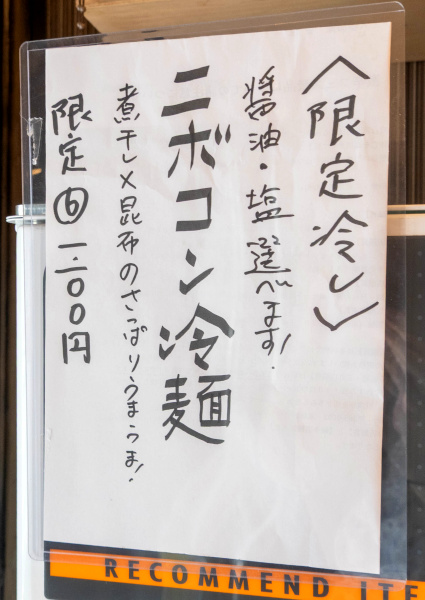 〈限定冷し〉
醤油・塩選べます!
ニボコン冷麺
煮干し×昆布のさっぱりうまうま!
限定⑩一、二〇〇円
RECOMMEND ITE